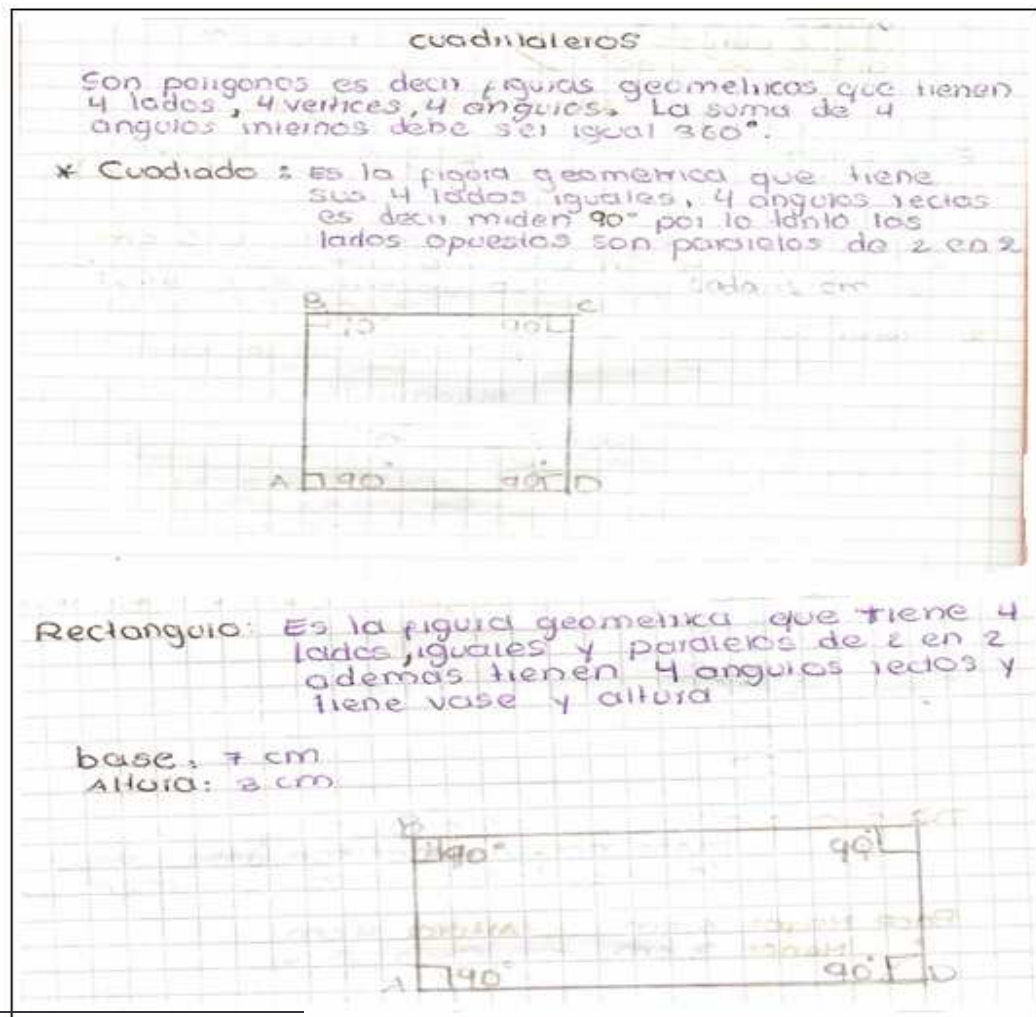 cuadrilateros
Son poligonos es decir figuras geometricas que tienen
4 lados, 4 vertices, 4 angulos. La suma de 4
angulos internos debe ser igual 360°.
* Cuadrado: Es la figura geometrica que tiene
sus 4 lados iguales, 4 angulos rectos
es decir miden 90° por lo tanto los
lados opuestos son paralelos de 2 en 2
B C
90
A 90° 90° D
Rectangulo: Es la figura geometrica que tiene 4
lados, iguales y paralelos de 2 en 2
ademas tienen 4 angulos rectos y
tiene vase y altura
base: 7 cm
Altura: 3 cm
90° 90°
A 90° 90° D